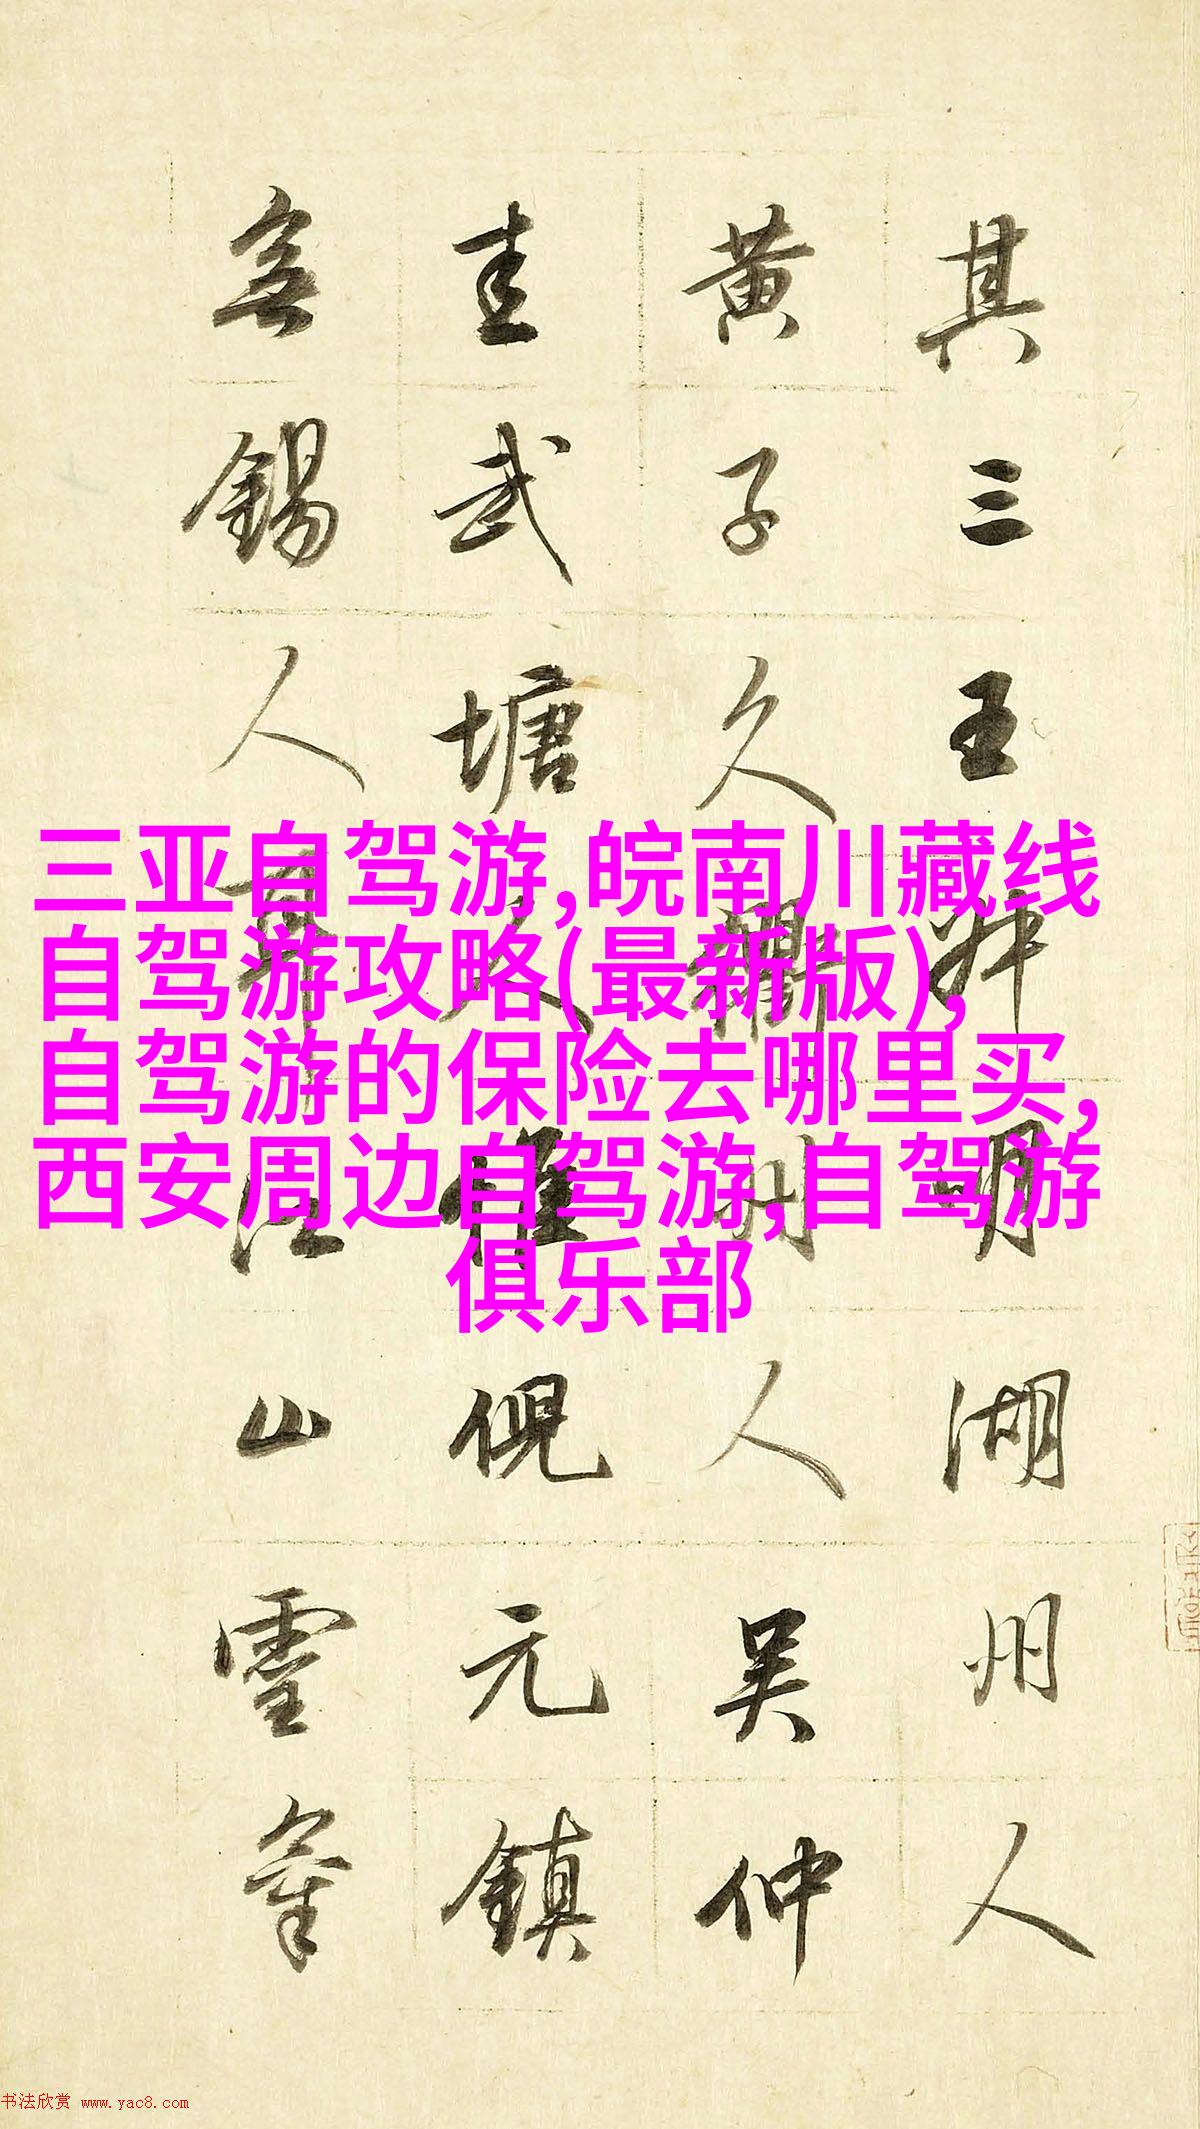 其三王叔明湖州人
黄子久衢州人吴仲
圭武塘人惟倪元鎮
無錫人耳江山靈氣
三亚自驾游,皖南川藏线
自驾游攻略(最新版),
自驾游的保险去哪里买,
西安周边自驾游,自驾游
俱乐部
书法欣赏 www.yac8.com